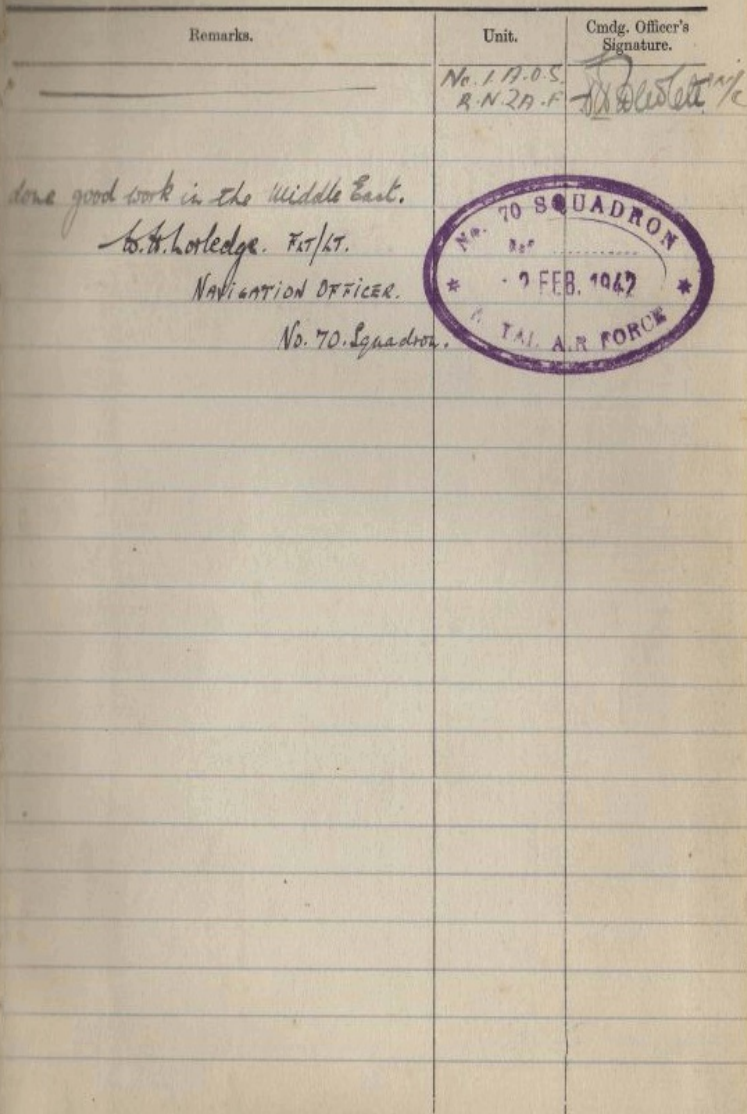 Remarks.
Unit.
Cmdg. Officer's
Signature.
No. 1. A.O.S.
R.N.Z.A.F
done good work in the Middle East.
FLT/LT.
NAVIGATION OFFICER.
No. 70. Squadron.
No. 70 SQUADRON
REF ............
2 FEB. 1942
AIR FORCE